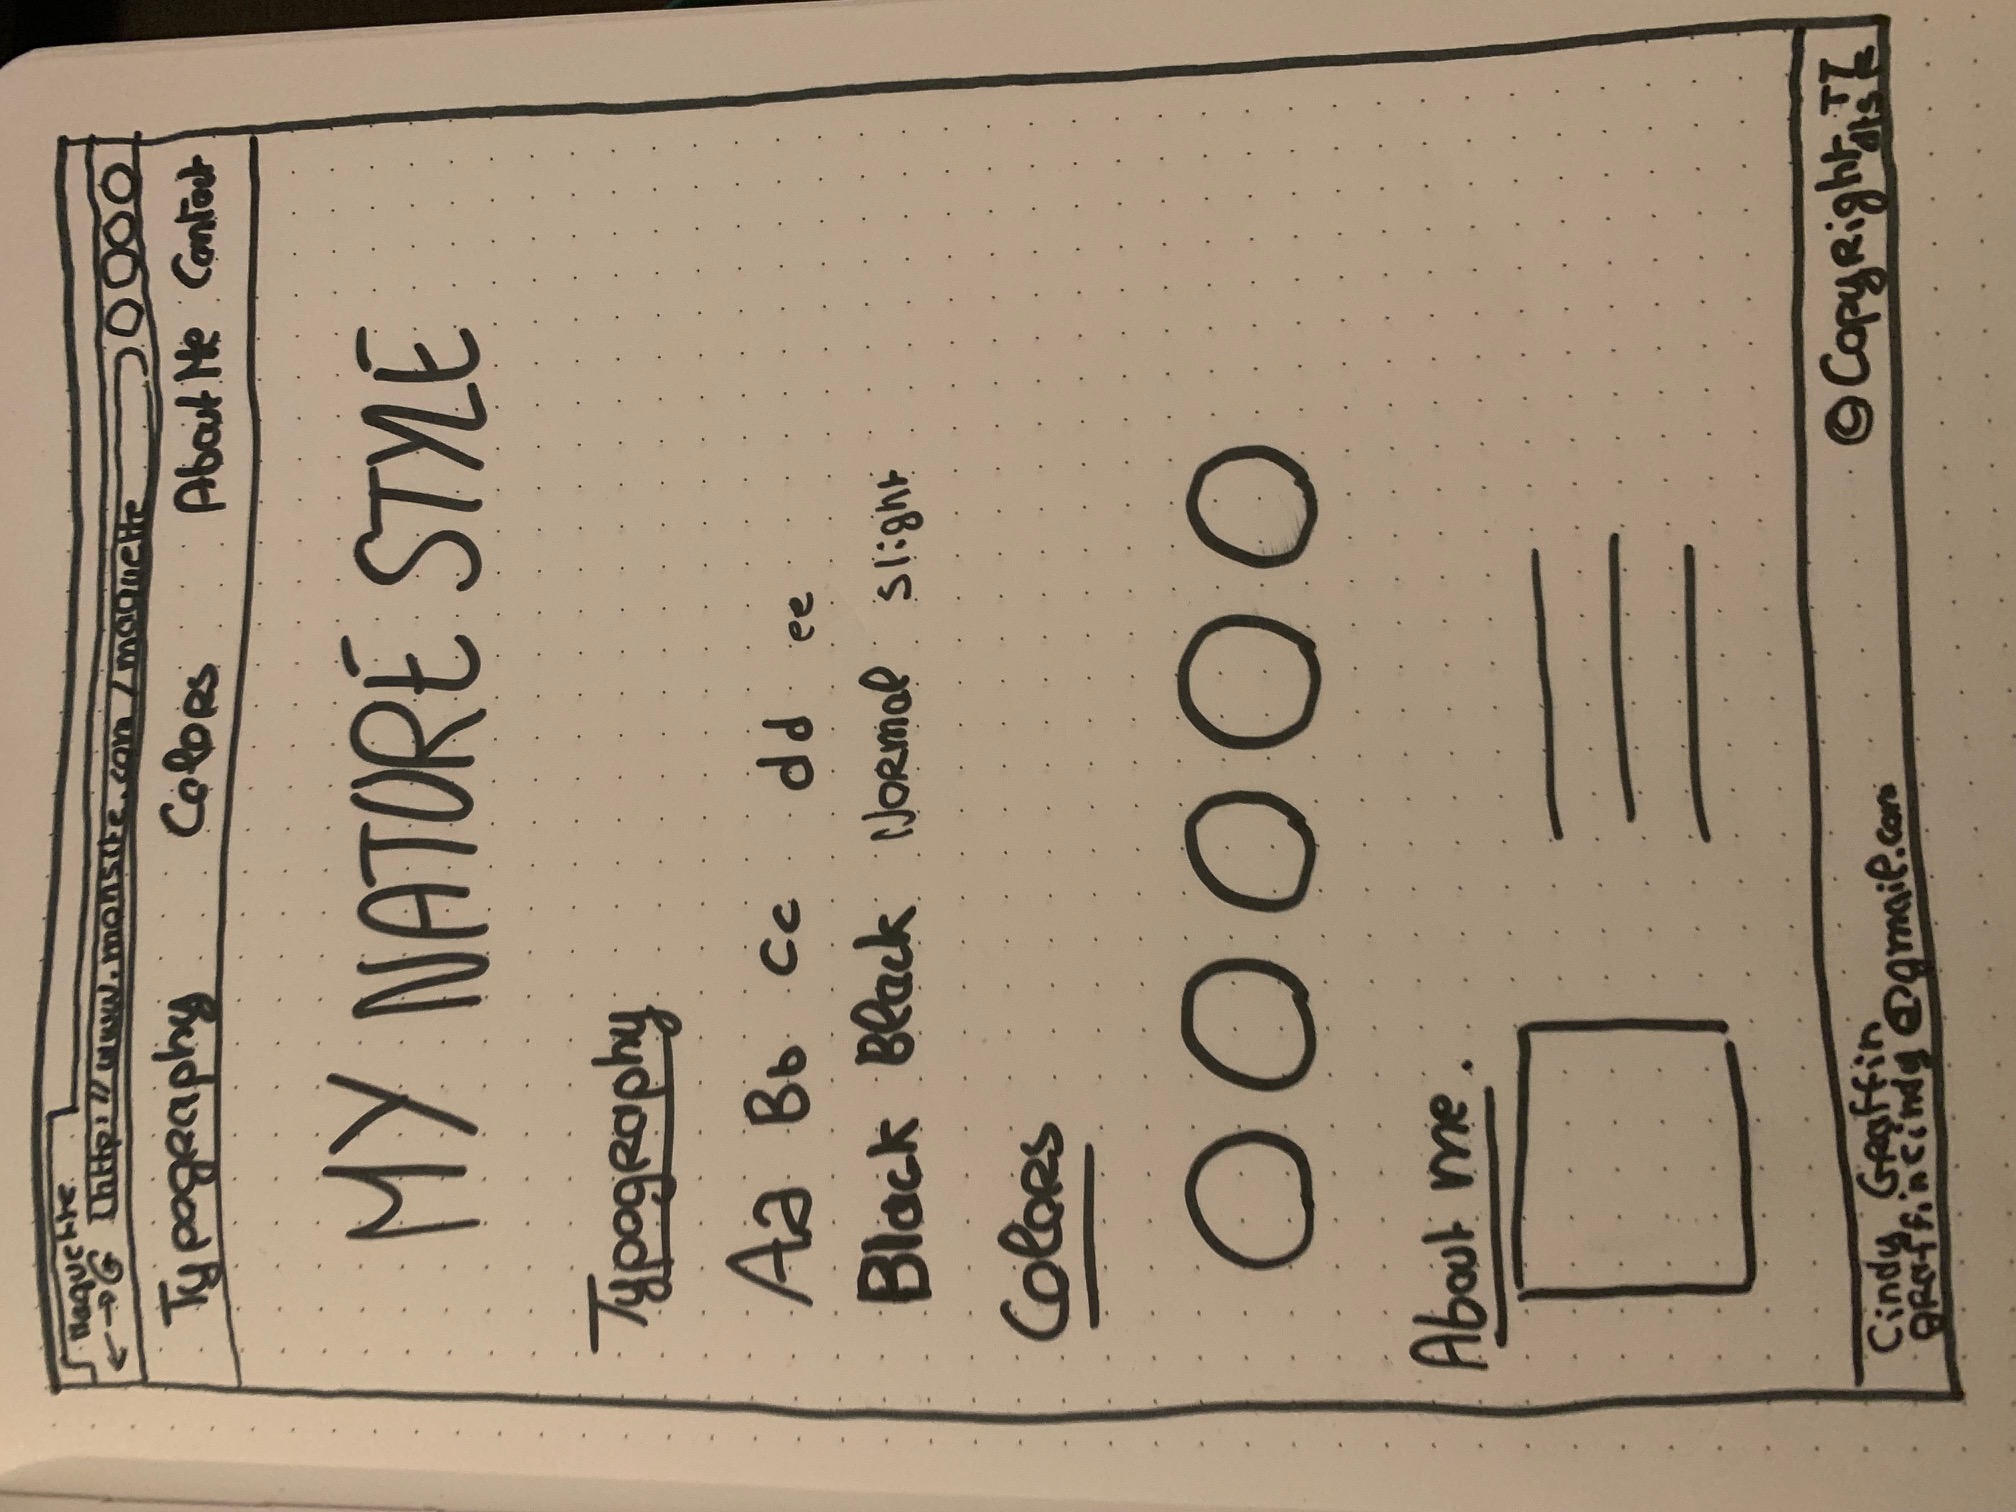 Maquette
http://www.monsite.com/maquette
Typography Colors About Me Contact
MY NATURE STYLE
Typography
Aa Bb Cc dd ee
Black Black Normal slight
Colors
About me.
Cindy Graffin
graffincindy@gmail.com
© Copyright